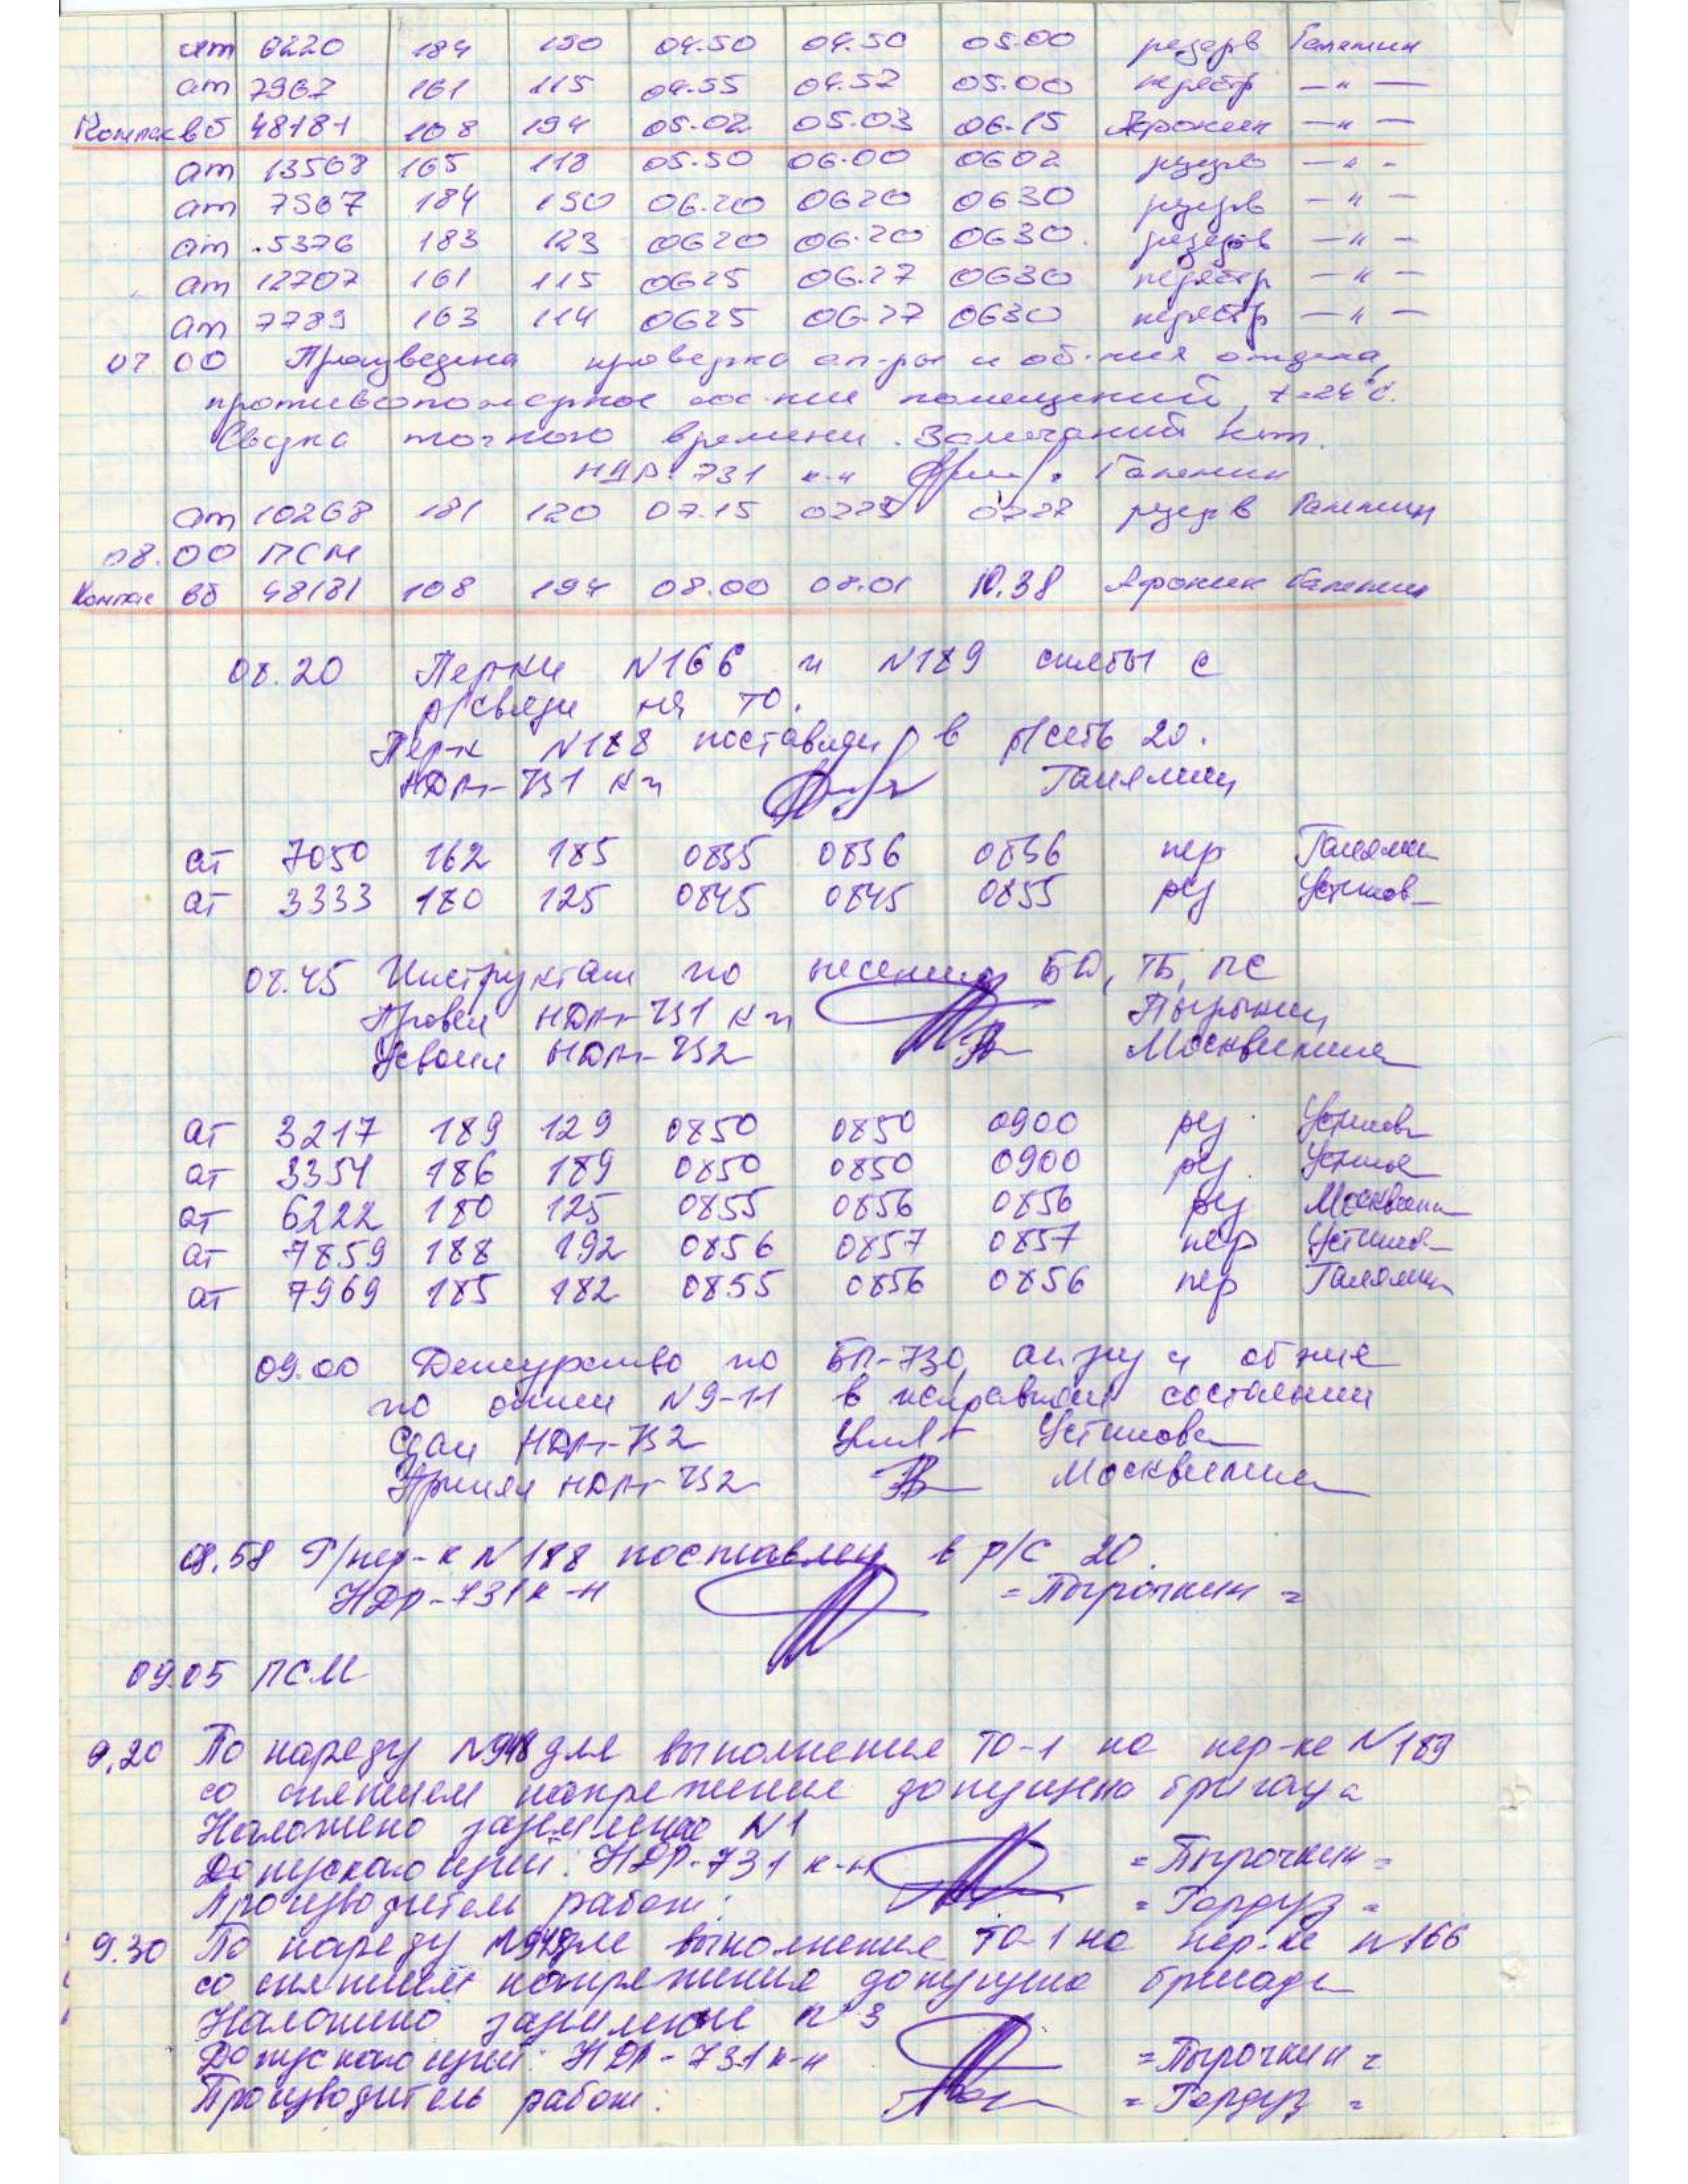 ат 6220 184 190 04.50 04.50 05.00 резерв Галямин
ат 7967 161 115 04.55 04.57 05.00 перестр —"—
Компас вб 48181 108 194 05.02 05.03 06.15 Афонин —"—
ат 13568 165 118 05.50 06.00 0602 резерв —"—
ат 7567 184 190 06.20 0620 0630 резерв —"—
ат 5376 183 123 0620 06.20 0630 резерв —"—
ат 12707 161 115 0625 06.27 0630 перестр —"—
ат 7789 163 114 0625 06.27 0630 перестр —"—
07 00 Произведена проверка ап-ры и об-ния отдела,
противопожарное сос-ние помещений, t=24°C.
Сверка точного времени. Замечаний нет.
НДР-731 к-н Галямин
ат 10268 181 120 07.15 0728 резерв Галямин
08.00 ПСМ
Компас вб 48181 108 194 08.00 08.01 10.38 Афонин Галямин
08.20 Пер-ки N166 и N189 сняты с
р/связи на ТО.
Пер-к N188 поставлен в р/сеть 20.
НДР-731 к-н Галямин
ат 7050 162 185 0835 0836 0836 пер Галямин
ат 3333 180 125 0845 0845 0855 рез Устинов
08.45 Инструктаж по несению БД, ТБ, ПС
Провел НДР-731 к-н Пырочкин
Усвоил НДР-732 Москвитина
ат 3217 189 129 0850 0850 0900 рез Устинова
ат 3354 186 189 0850 0850 0900 рез Устинова
ат 6222 180 125 0855 0856 0856 рез Москвитина
ат 7859 188 192 0856 0857 0857 пер Устинова
ат 7969 185 182 0855 0856 0856 пер Галямин
09.00 Дежурство по БП-730, ап-ру и об-ние
по описи N9-11 в исправном состоянии
Сдал НДР-732 Устинова
Принял НДР-732 Москвитина
08.58 Р/пер-к N188 поставлен в р/с 20.
НДР-731 к-н =Пырочкин=
09.05 ПСМ
9.20 По наряду N948 для выполнения ТО-1 на пер-ке N189
со снятием напряжения допущена бригада
Наложено заземление N1
Допускающий: НДР-731 к-н =Пырочкин=
Производитель работ: =Гордуз=
9.30 По наряду N948 для выполнения ТО-1 на пер-ке N166
со снятием напряжения допущена бригада
Наложено заземление N3
Допускающий: НДР-731 к-н =Пырочкин=
Производитель работ: =Гордуз=